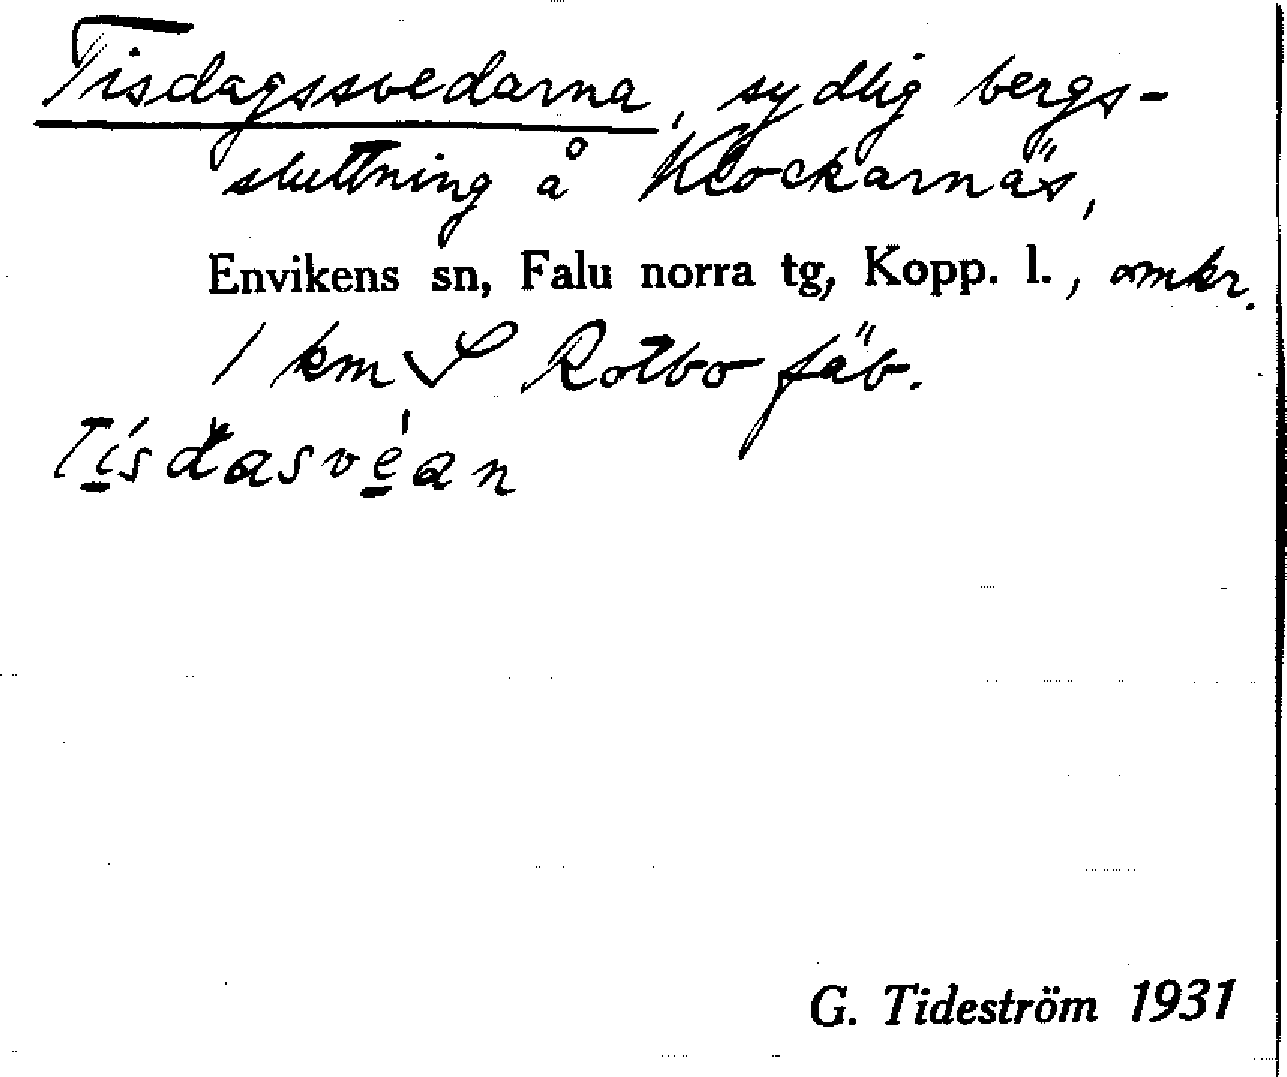 Tisdagssvedarna, sydlig bergs-
sluttning å Klockarnäs,
Envikens sn, Falu norra tg, Kopp. l., omkr.
1 km V S Rotbo fäb.
Tísdasvéan
G. Tideström 1931